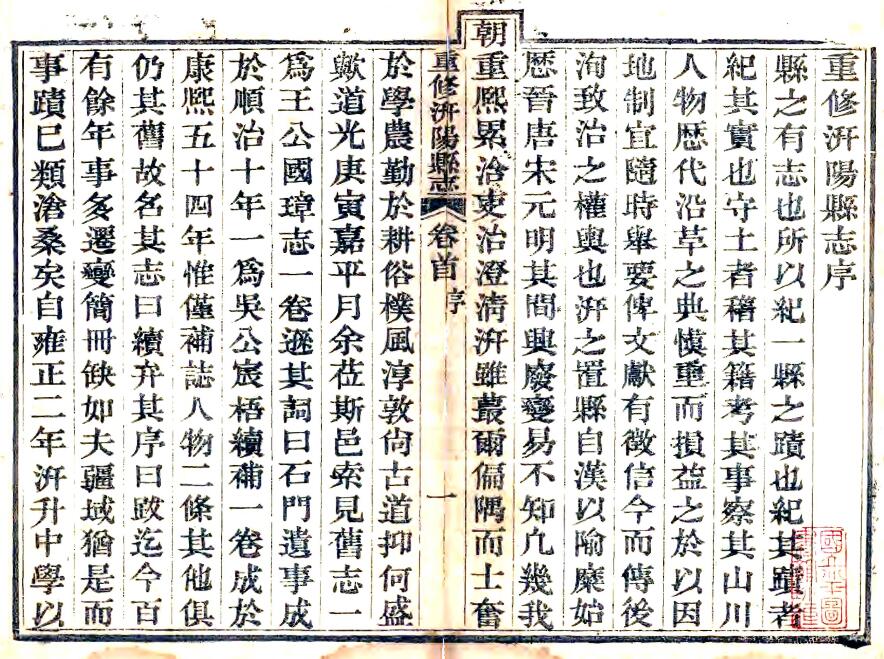 重修汧陽縣志序
縣之有志也所以紀一縣之蹟也紀其蹟者
紀其實也守土者稽其籍考其事察其山川
人物歴代沿革之典慎重而損益之於以因
地制宜隨時舉要俾文獻有徵信今而傳後
洵致治之權輿也汧之置縣自漢以隃糜始
歴晉唐宋元明其間興廢變易不知凢幾我
朝重熙累洽吏治澄清汧雖蕞爾偏隅而士奮
重修汧陽縣志
卷首
序
一
於學農勤於耕俗樸風淳敦尙古道抑何盛
歟道光庚寅嘉平月余莅斯邑索見舊志一
爲王公國瑋志一卷遜其詞曰石門遺事成
於順治十年一爲吳公宸梧續補一卷成於
康熙五十四年惟僅補誌人物二條其他俱
仍其舊故名其志曰續弁其序曰跋迄今百
有餘年事多遷變簡冊缺如夫疆域猶是而
事蹟已類滄桑矣自雍正二年汧升中學以